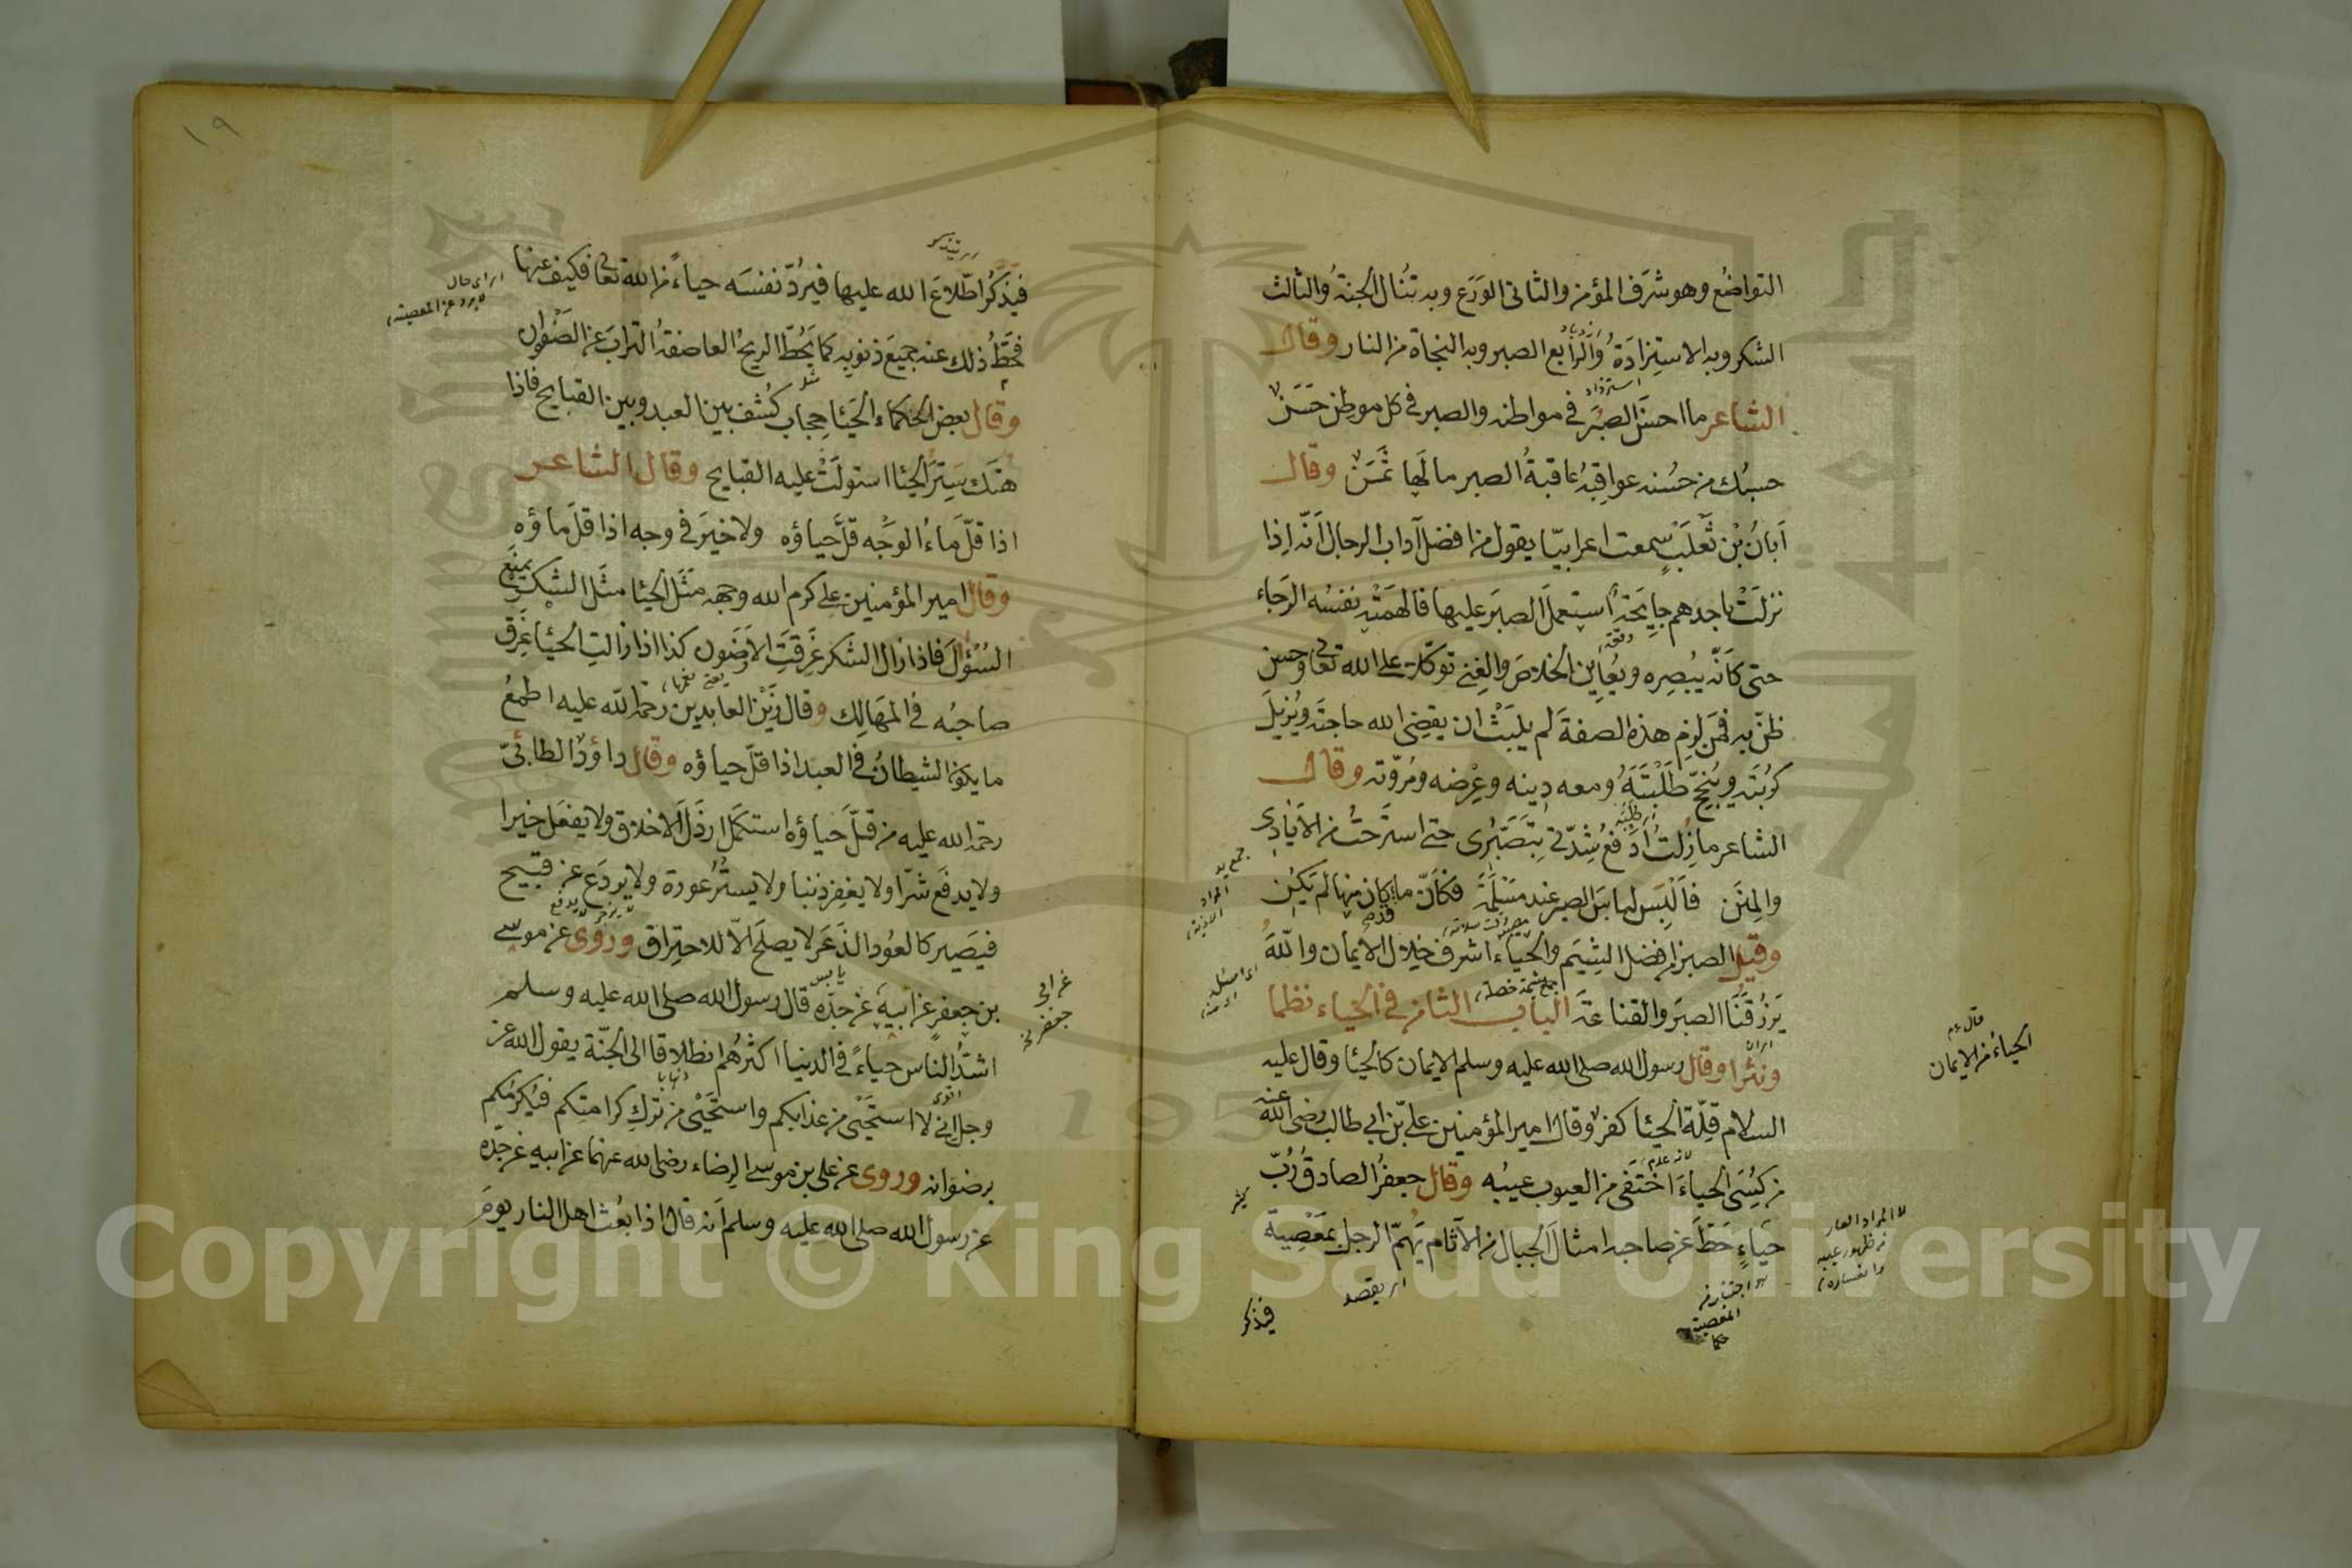 التواضُع وهو شرَف المؤمن والثانى الوَرَع وبه تُنال الجنةُ والثالث
الشكر وبه الاستِزادَةُ والرابع الصبر وبه النجاة من النار وقال
الشاعر ما احسَنَ الصبْرَ فى مواطنه والصبر فى كل موطن حَسَنٌ
حسبُك من حسُنه عواقِبُه عاقبةُ الصبر ما لَها ثمَنٌ وقال
اَبانُ بْن ثَعْلَبٍ سمعت اعرابيّا يقول من افضل آداب الرجال اَنّه اِذا
نزلَتْ باحدهم جايحَةٌ استعملَ الصبَر عليها فالهمَتْه نفسُه الرَجاء
حتى كاَنّه يُبصِره ويُعاين الخلاصَ والغِنى توكلا على الله تعالى وحسن
ظنّ به فمَن لزِم هذه الصفةَ لم يلبَثْ ان يقضِىَ الله حاجتَه ويُزيلَ
كرُبتَه ويُنجِحَ طَلِبَتَهُ ومعه دِينه وعِرْضه ومُروّته وقال
الشاعر ما زِلتُ اَدفَعُ شِدّتى بِتَصَبُّرى حتى استَرحتُ من الاَيادى
والمِنَن فاَلْبَس لباسَ الصبر عند مسَلَّةٍ فكاَنّ ما كان منها لم يَكُنِ
وقيل الصبر من افضل الشِيَم والحياء اشرف خِلال الايمان واللهُ
يَرزُقنَا الصبَر والقناعةَ الباب الثامن فى الحياء نظما
ونثرا وقال رسول الله صلى الله عليه وسلم الايمان كالحيا وقال عليه
السلام قلّة الحيا كفر وقال امير المؤمنين على بن ابى طالب رضى الله عنه
من كُسِىَ الحياءَ اختَفى من العيوب عيبُه وقال جعفرُ الصادقُ رُبّ
حيَاءٍ حَطّ عن صاحبه امثالَ الجبال من الآثام يَهُمّ الرجل بمَعْصِية
قال عم
الحياءُ من الايمان
اى يقصد
فيذكر
١٩
فيذكُر اطّلاعَ الله عليها فيَردّ نفسَه حياءً من الله تعالى فكيف عنها
فيحُطّ ذلك عنه جميعَ ذنوبِه كما يَحُطّ الريحُ العاصفةُ الترابَ عن الصَفْوان
وقال بعض الحكماء الحَيَا حِجاب كُشِف بين العبد وبين القبايح فاذا
هَتَكَ سِترَ الحيَا استولَتْ عليه القبايح وقال الشاعر
اذا قلّ مَاءُ الوَجْه قلّ حياؤه ولا خيرَ فى وجه اذا قلّ ماؤه
وقال امير المؤمنين على كرم الله وجهه مَثَل الحيا مثَل الشِكر يمنَع
السُؤلَ فاذا زال الشكر غَرِقَتِ الاَرَضُون كذا اذا زالتِ الحيَا غَرِق
صاحبُه فى المَهَالِك وقال زَيْن العابدين رحمة الله عليه اطمعُ
ما يكون الشيطانُ فى العبد اذا قلّ حياؤه وقال داؤدُ الطائىّ
رحمة الله عليه من قلّ حياؤه استكمَل ارذَلَ الاخلاق ولا يفعَل خيرا
ولا يدفَع شرّا ولا يغفِر ذنبا ولا يستُر عورة ولا يردَع عن قبيح
فيَصير كالعُود الذَعَر لا يصلَح الاّ للاحتِراق ورُوى عن موسى
بن جعفر عن ابيه عن جدّه قال رسول الله صلى الله عليه وسلم
اشدُّ الناس حياءً فى الدنيا اكثرُهم انطلاقا الى الجنّة يقول الله عز
وجل انى لا استَحْيى من عذابكم واستَحْيى من تركِ كرامتِكم فيُكرمُكم
برضوانه وروى عن على بن موسى الرضاء رضى الله عنهما عن ابيه عن جدّه
عن رسول الله صلى الله عليه وسلم اَنه قال اذا بعُث اهل النار يومَ
عن ابى
جعفر نخ
Copyright © King Saud University
1957